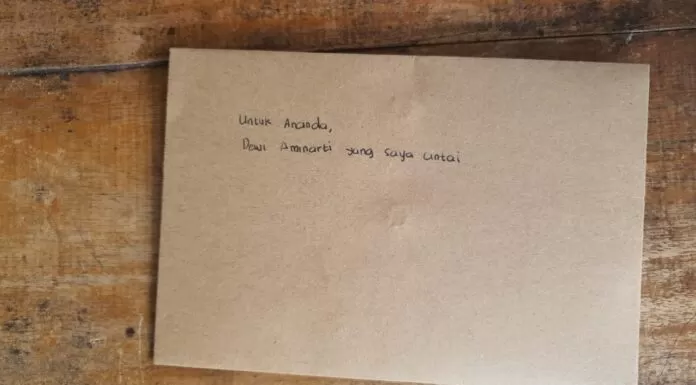 Untuk Ananda,
Dawi Aminarti yang saya cintai